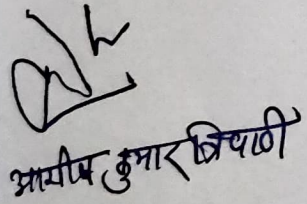 आशीष कुमार त्रिपाठी